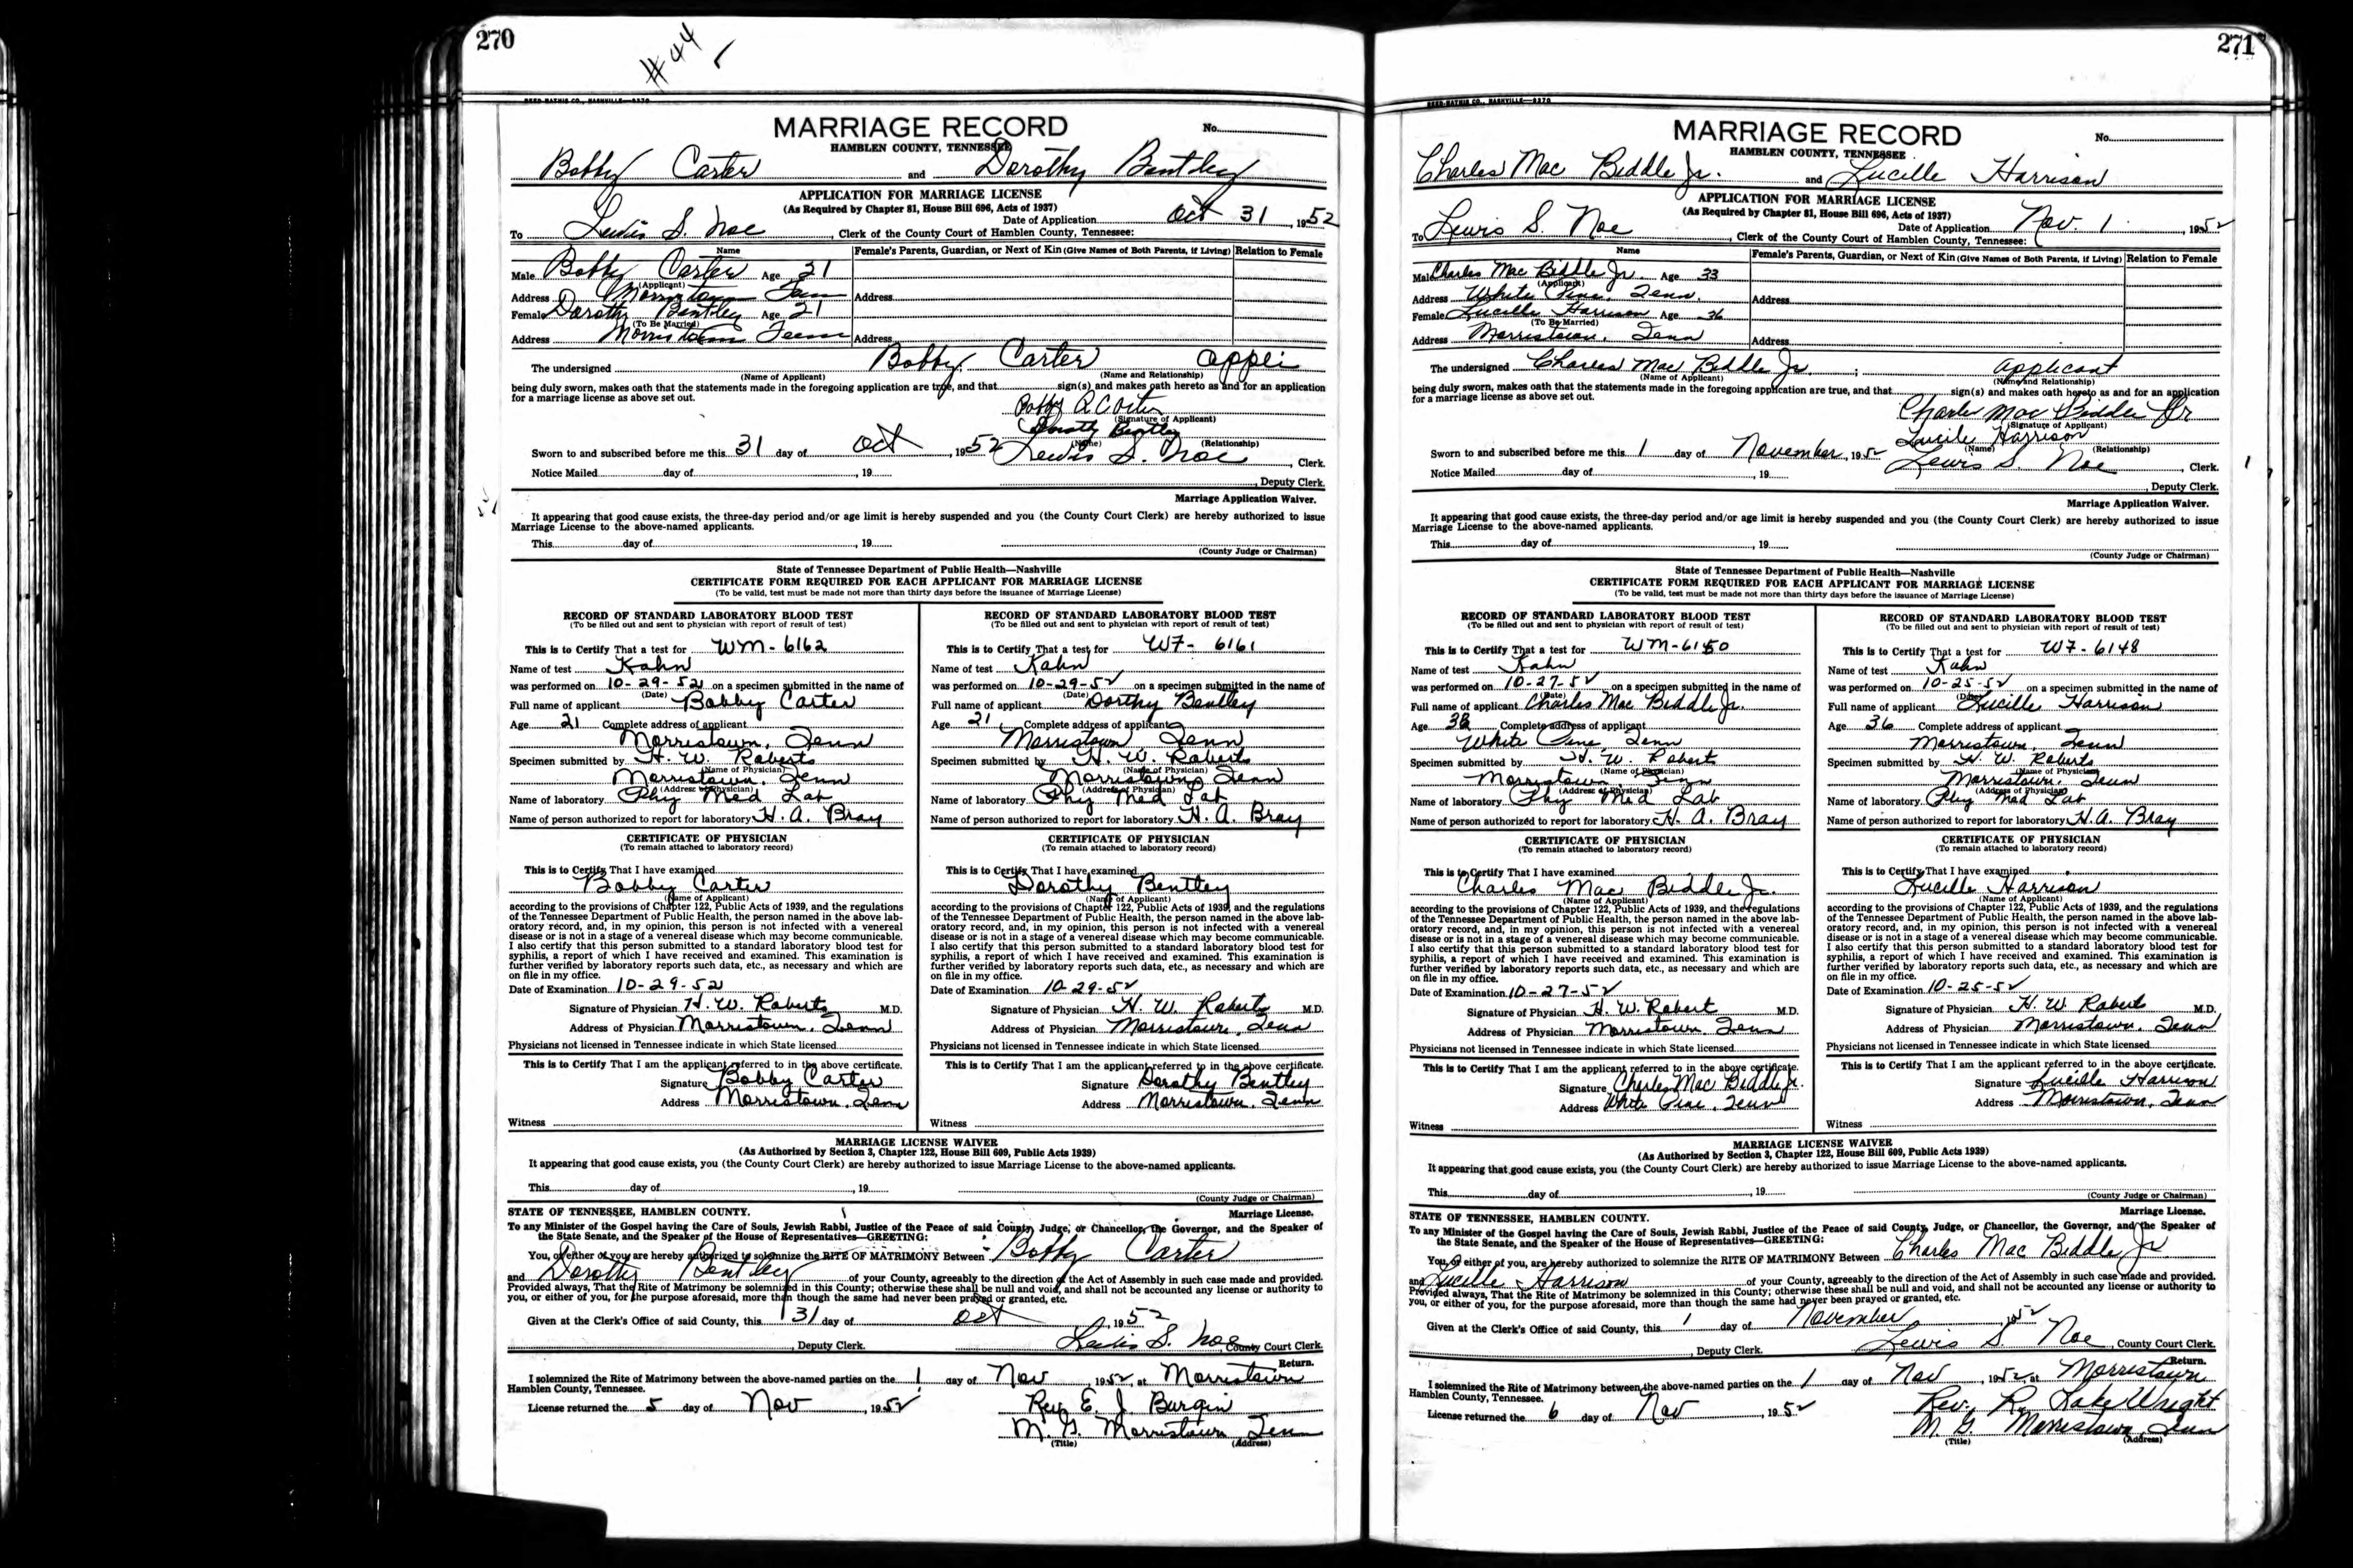 270
#44
REED-MATHIS CO., NASHVILLE—9370
MARRIAGE RECORD
No.
HAMBLEN COUNTY, TENNESSEE
Bobby Carter and Dorothy Bentley
APPLICATION FOR MARRIAGE LICENSE
(As Required by Chapter 81, House Bill 696, Acts of 1937)
Date of Application Oct 31, 1952
To Lewis S. Noe, Clerk of the County Court of Hamblen County, Tennessee:
Name Female's Parents, Guardian, or Next of Kin (Give Names of Both Parents, if Living) Relation to Female
Male Bobby Carter Age 21
(Applicant)
Address Morristown Tenn Address
Female Dorothy Bentley Age 21
(To Be Married)
Address Morristown Tenn Address
The undersigned Bobby Carter Appli
(Name of Applicant) (Name and Relationship)
being duly sworn, makes oath that the statements made in the foregoing application are true, and that sign(s) and makes oath hereto as and for an application
for a marriage license as above set out.
Bobby R Carter
(Signature of Applicant)
Dorothy Bentley
(Name) (Relationship)
Sworn to and subscribed before me this 31 day of Oct, 1952 Lewis S. Noe, Clerk.
Notice Mailed day of, 19
, Deputy Clerk.
Marriage Application Waiver.
It appearing that good cause exists, the three-day period and/or age limit is hereby suspended and you (the County Court Clerk) are hereby authorized to issue
Marriage License to the above-named applicants.
This day of, 19
(County Judge or Chairman)
State of Tennessee Department of Public Health—Nashville
CERTIFICATE FORM REQUIRED FOR EACH APPLICANT FOR MARRIAGE LICENSE
(To be valid, test must be made not more than thirty days before the issuance of Marriage License)
RECORD OF STANDARD LABORATORY BLOOD TEST
(To be filled out and sent to physician with report of result of test)
This is to Certify That a test for WM-6162
Name of test Kahn
was performed on 10-29-52 on a specimen submitted in the name of
(Date)
Full name of applicant Bobby Carter
Age 21 Complete address of applicant
Morristown, Tenn
Specimen submitted by H. W. Roberts
(Name of Physician)
Morristown, Tenn
(Address of Physician)
Name of laboratory Phy Med Lab
Name of person authorized to report for laboratory H. A. Bray
CERTIFICATE OF PHYSICIAN
(To remain attached to laboratory record)
This is to Certify That I have examined
Bobby Carter
(Name of Applicant)
according to the provisions of Chapter 122, Public Acts of 1939, and the regulations
of the Tennessee Department of Public Health, the person named in the above lab-
oratory record, and, in my opinion, this person is not infected with a venereal
disease or is not in a stage of a venereal disease which may become communicable.
I also certify that this person submitted to a standard laboratory blood test for
syphilis, a report of which I have received and examined. This examination is
further verified by laboratory reports such data, etc., as necessary and which are
on file in my office.
Date of Examination 10-29-52
Signature of Physician H. W. Roberts M.D.
Address of Physician Morristown, Tenn
Physicians not licensed in Tennessee indicate in which State licensed
This is to Certify That I am the applicant referred to in the above certificate.
Signature Bobby Carter
Address Morristown, Tenn
Witness
RECORD OF STANDARD LABORATORY BLOOD TEST
(To be filled out and sent to physician with report of result of test)
This is to Certify That a test for WF- 6161
Name of test Kahn
was performed on 10-29-52 on a specimen submitted in the name of
(Date)
Full name of applicant Dorthy Bentley
Age 21 Complete address of applicant
Morristown, Tenn
Specimen submitted by H. W. Roberts
(Name of Physician)
Morristown, Tenn
(Address of Physician)
Name of laboratory Phy Med Lab
Name of person authorized to report for laboratory H. A. Bray
CERTIFICATE OF PHYSICIAN
(To remain attached to laboratory record)
This is to Certify That I have examined
Dorothy Bentley
(Name of Applicant)
according to the provisions of Chapter 122, Public Acts of 1939, and the regulations
of the Tennessee Department of Public Health, the person named in the above lab-
oratory record, and, in my opinion, this person is not infected with a venereal
disease or is not in a stage of a venereal disease which may become communicable.
I also certify that this person submitted to a standard laboratory blood test for
syphilis, a report of which I have received and examined. This examination is
further verified by laboratory reports such data, etc., as necessary and which are
on file in my office.
Date of Examination 10-29-52
Signature of Physician H. W. Roberts M.D.
Address of Physician Morristown, Tenn
Physicians not licensed in Tennessee indicate in which State licensed
This is to Certify That I am the applicant referred to in the above certificate.
Signature Dorothy Bentley
Address Morristown, Tenn
Witness
MARRIAGE LICENSE WAIVER
(As Authorized by Section 3, Chapter 122, House Bill 609, Public Acts 1939)
It appearing that good cause exists, you (the County Court Clerk) are hereby authorized to issue Marriage License to the above-named applicants.
This day of, 19
(County Judge or Chairman)
STATE OF TENNESSEE, HAMBLEN COUNTY. Marriage License.
To any Minister of the Gospel having the Care of Souls, Jewish Rabbi, Justice of the Peace of said County, Judge, or Chancellor, the Governor, and the Speaker of
the State Senate, and the Speaker of the House of Representatives—GREETING:
You, or either of you, are hereby authorized to solemnize the RITE OF MATRIMONY Between Bobby Carter
and Dorothy Bentley of your County, agreeably to the direction of the Act of Assembly in such case made and provided.
Provided always, That the Rite of Matrimony be solemnized in this County; otherwise these shall be null and void, and shall not be accounted any license or authority to
you, or either of you, for the purpose aforesaid, more than though the same had never been prayed or granted, etc.
Given at the Clerk's Office of said County, this 31 day of Oct, 1952
, Deputy Clerk. Lewis S. Noe County Court Clerk.
Return.
I solemnized the Rite of Matrimony between the above-named parties on the 1 day of Nov, 1952, at Morristown
Hamblen County, Tennessee.
License returned the 5 day of Nov, 1952 Rev. E. J. Burgin
M. G. Morristown, Tenn
(Title) (Address)
271
REED-MATHIS CO., NASHVILLE—9370
MARRIAGE RECORD
No.
HAMBLEN COUNTY, TENNESSEE
Charles Mac Biddle Jr. and Lucille Harrison
APPLICATION FOR MARRIAGE LICENSE
(As Required by Chapter 81, House Bill 696, Acts of 1937)
Date of Application Nov. 1, 1952
To Lewis S. Noe, Clerk of the County Court of Hamblen County, Tennessee:
Name Female's Parents, Guardian, or Next of Kin (Give Names of Both Parents, if Living) Relation to Female
Male Charles Mac Biddle Jr. Age 33
(Applicant)
Address White Pine, Tenn. Address
Female Lucille Harrison Age 36
(To Be Married)
Address Morristown, Tenn Address
The undersigned Charles Mac Biddle Jr.; Applicant
(Name of Applicant) (Name and Relationship)
being duly sworn, makes oath that the statements made in the foregoing application are true, and that sign(s) and makes oath hereto as and for an application
for a marriage license as above set out.
Charles Mac Biddle Jr
(Signature of Applicant)
Lucile Harrison
(Name) (Relationship)
Sworn to and subscribed before me this 1 day of November, 1952 Lewis S. Noe, Clerk.
Notice Mailed day of, 19
, Deputy Clerk.
Marriage Application Waiver.
It appearing that good cause exists, the three-day period and/or age limit is hereby suspended and you (the County Court Clerk) are hereby authorized to issue
Marriage License to the above-named applicants.
This day of, 19
(County Judge or Chairman)
State of Tennessee Department of Public Health—Nashville
CERTIFICATE FORM REQUIRED FOR EACH APPLICANT FOR MARRIAGE LICENSE
(To be valid, test must be made not more than thirty days before the issuance of Marriage License)
RECORD OF STANDARD LABORATORY BLOOD TEST
(To be filled out and sent to physician with report of result of test)
This is to Certify That a test for WM-6150
Name of test Kahn
was performed on 10-27-52 on a specimen submitted in the name of
(Date)
Full name of applicant Charles Mac Biddle Jr.
Age Complete address of applicant
White Pine, Tenn
Specimen submitted by H. W. Robert
(Name of Physician)
Morristown, Tenn
(Address of Physician)
Name of laboratory Phy Med Lab
Name of person authorized to report for laboratory H. A. Bray
CERTIFICATE OF PHYSICIAN
(To remain attached to laboratory record)
This is to Certify That I have examined
Charles Mac Biddle Jr.
(Name of Applicant)
according to the provisions of Chapter 122, Public Acts of 1939, and the regulations
of the Tennessee Department of Public Health, the person named in the above lab-
oratory record, and, in my opinion, this person is not infected with a venereal
disease or is not in a stage of a venereal disease which may become communicable.
I also certify that this person submitted to a standard laboratory blood test for
syphilis, a report of which I have received and examined. This examination is
further verified by laboratory reports such data, etc., as necessary and which are
on file in my office.
Date of Examination 10-27-52
Signature of Physician H. W. Robert M.D.
Address of Physician Morristown, Tenn
Physicians not licensed in Tennessee indicate in which State licensed
This is to Certify That I am the applicant referred to in the above certificate.
Signature Charles Mac Biddle Jr.
Address White Pine, Tenn
Witness
RECORD OF STANDARD LABORATORY BLOOD TEST
(To be filled out and sent to physician with report of result of test)
This is to Certify That a test for WF-6148
Name of test Kahn
was performed on 10-25-52 on a specimen submitted in the name of
(Date)
Full name of applicant Lucille Harrison
Age 36 Complete address of applicant
Morristown, Tenn
Specimen submitted by H. W. Roberts
(Name of Physician)
Morristown, Tenn
(Address of Physician)
Name of laboratory Phy Med Lab
Name of person authorized to report for laboratory H. A. Bray
CERTIFICATE OF PHYSICIAN
(To remain attached to laboratory record)
This is to Certify That I have examined
Lucille Harrison
(Name of Applicant)
according to the provisions of Chapter 122, Public Acts of 1939, and the regulations
of the Tennessee Department of Public Health, the person named in the above lab-
oratory record, and, in my opinion, this person is not infected with a venereal
disease or is not in a stage of a venereal disease which may become communicable.
I also certify that this person submitted to a standard laboratory blood test for
syphilis, a report of which I have received and examined. This examination is
further verified by laboratory reports such data, etc., as necessary and which are
on file in my office.
Date of Examination 10-25-52
Signature of Physician H. W. Roberts M.D.
Address of Physician Morristown, Tenn
Physicians not licensed in Tennessee indicate in which State licensed
This is to Certify That I am the applicant referred to in the above certificate.
Signature Lucille Harrison
Address Morristown, Tenn
Witness
MARRIAGE LICENSE WAIVER
(As Authorized by Section 3, Chapter 122, House Bill 609, Public Acts 1939)
It appearing that good cause exists, you (the County Court Clerk) are hereby authorized to issue Marriage License to the above-named applicants.
This day of, 19
(County Judge or Chairman)
STATE OF TENNESSEE, HAMBLEN COUNTY. Marriage License.
To any Minister of the Gospel having the Care of Souls, Jewish Rabbi, Justice of the Peace of said County, Judge, or Chancellor, the Governor, and the Speaker of
the State Senate, and the Speaker of the House of Representatives—GREETING:
You, or either of you, are hereby authorized to solemnize the RITE OF MATRIMONY Between Charles Mac Biddle Jr
and Lucille Harrison of your County, agreeably to the direction of the Act of Assembly in such case made and provided.
Provided always, That the Rite of Matrimony be solemnized in this County; otherwise these shall be null and void, and shall not be accounted any license or authority to
you, or either of you, for the purpose aforesaid, more than though the same had never been prayed or granted, etc.
Given at the Clerk's Office of said County, this 1 day of November, 1952
, Deputy Clerk. Lewis S Noe, County Court Clerk.
Return.
I solemnized the Rite of Matrimony between the above-named parties on the 1 day of Nov, 1952, at Morristown
Hamblen County, Tennessee.
License returned the 6 day of Nov, 1952 Rev. R. Lake Wright
M. G. Morristown, Tenn
(Title) (Address)